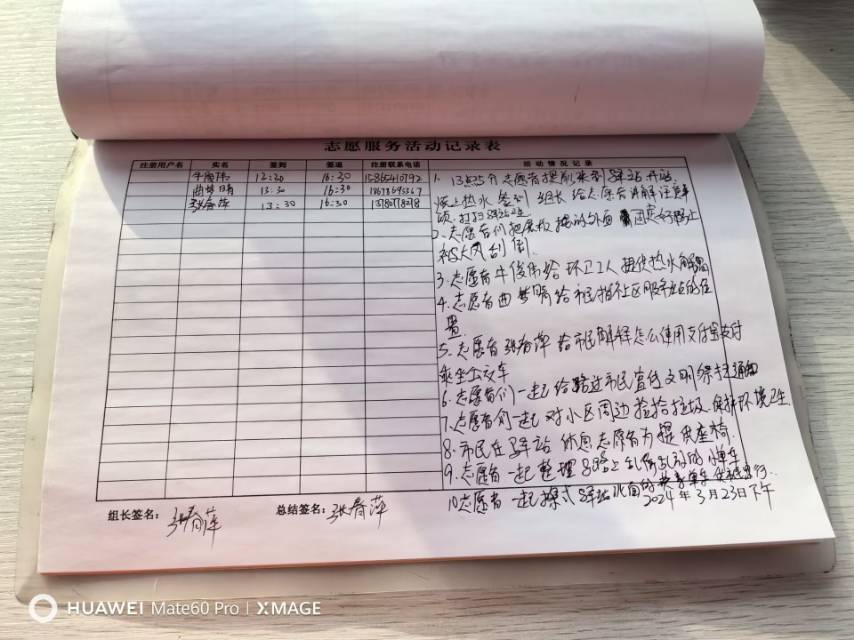 志愿服务活动记录表
注册用户名 实名 签到 签退 注册联系电话 活动情况记录
牛俊伟 12:30 16:30 15865410792
曲梦晴 13:30 16:30
张春萍 13:30 16:30
1. 13点25分志愿者提前来到驿站开站,
烧上热水 签到 组长给志愿者讲解注意事
项. 打扫驿站卫生
2. 志愿者们把展板 摆放外面 固定好防止
被大风刮倒.
3. 志愿者牛俊伟给环卫工人提供热水解渴
4. 志愿者曲梦晴给市民指社区服务站的位
置.
5. 志愿者张春萍给市民解释怎么使用支付宝支付
乘坐公交车
6. 志愿者们一起给路过市民宣传文明
7. 志愿者们一起对小区周边捡拾垃圾.保持环境卫生.
8. 市民在驿站休息志愿者为提供座椅.
9. 志愿者一起整理路上乱停乱放的单车
10 志愿者一起擦式驿站北面的共享单车
2024年3月23日下午
组长签名: 张春萍 总结签名: 张春萍
HUAWEI Mate60 Pro | XMAGE